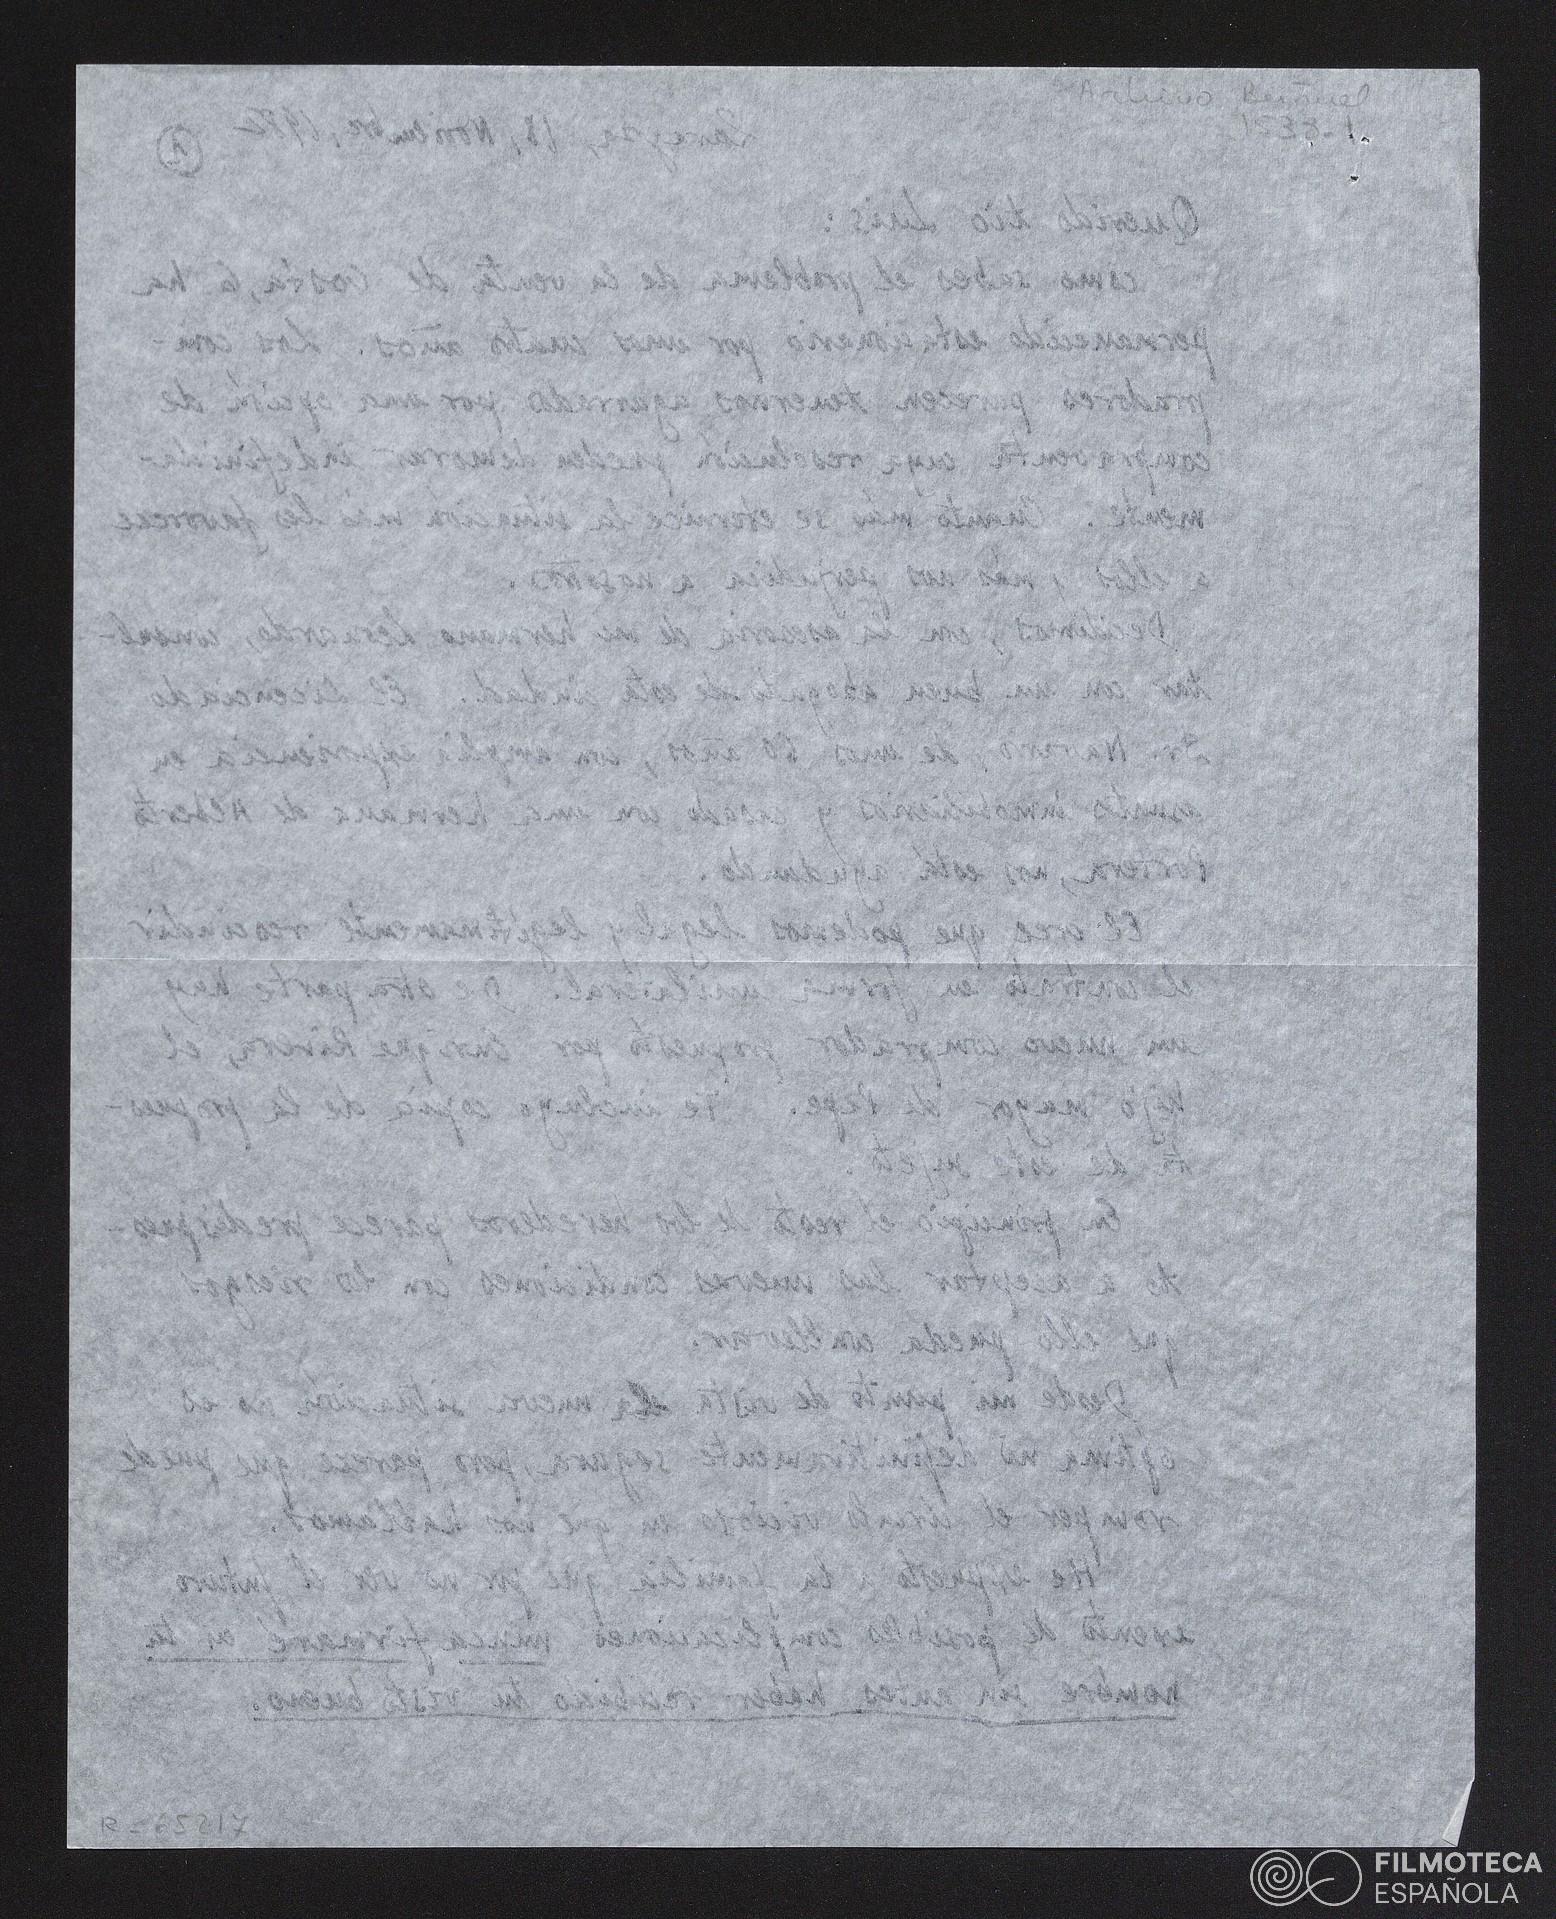 Archivo Buñuel
1538-1
Zaragoza, 18, Noviembre, 1972
1
Querido tío Luis:
como sabes el problema de la venta de Costa, 6 ha
permanecido estacionario por unos cuatro años. Los com-
pradores parecen tenernos agarrados por una opción de
compraventa cuya resolución pueden demorar indefinida-
mente. Cuanto más se eternice la situación más les favorece
a ellos, más nos perjudica a nosotros.
Decidimos, con la asesoría de mi hermano Leonardo, consul-
tar con un buen abogado de esta ciudad. El Licenciado
Sr. Navarro, de unos 50 años, con amplia experiencia en
asuntos inmobiliarios y casado con una hermana de Alberto
Portera, nos está ayudando.
El cree que podemos legal y legítimamente rescindir
el contrato en forma unilateral. De otra parte hay
un nuevo comprador propuesto por Enrique Rivera, el
hijo mayor de Pepe. Te incluyo copia de la propues-
ta de este sujeto.
En principio el resto de los herederos parece predispues-
to a aceptar las nuevas condiciones con los riesgos
que ello pueda conllevar.
Desde mi punto de vista la nueva situación no es
óptima ni definitivamente segura, pero parece que puede
romper el círculo vicioso en que nos hallamos.
He expuesto a la familia que por no ver el futuro
exento de posibles complicaciones nunca firmaré en tu
nombre sin antes haber recibido tu visto bueno.
R-65217
FILMOTECA
ESPAÑOLA